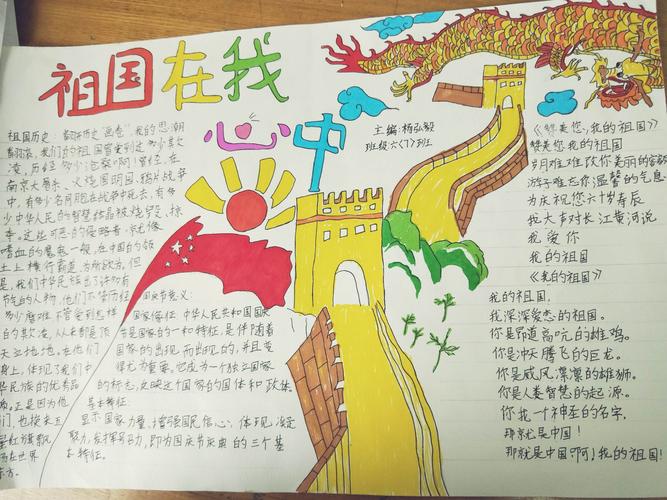 祖国在我
心中
主编：杨弘毅
班级六（7）班班
祖国历史
我的思潮
翻滚，我们的祖国曾受到过多少欺
凌，历经多少沧桑啊！曾经，在
南京大屠杀、火烧圆明园、鸦片战争
中，有多少名同胞在战争中死去，有多
少中华人民的智慧结晶被烧毁、掠
夺。这些可恶的侵略者，就像
嗜血的魔鬼一般，在中国的领
土上横行霸道、为所欲为，但
是，我们中华民族出了许多有
节气的人物，他们不管历经
多少磨难不管受到怎样
的欺凌，从来都是顶
天立地地，在他们
身上，体现了我们中
华民族的优秀品
质。正是因为他
们，也换来五
星红旗飘
扬在世界
东方。
国庆节意义：
国家象征 中华人民共和国国庆
节是国家的一种特征，是伴随着
国家的出现而出现的，并且变
得尤为重要。它成为一个独立国家
的标志，反映这个国家的国体和政体。
基本特征：
显示国家力量、增强国民信心，体现凝
聚力，发挥号召力，即为国庆节庆典的三个基
本特征。
《赞美您，我的祖国》
赞美您，我的祖国
岁月难难改你美丽的容颜
游子难忘你温馨的气息
为庆祝您六十岁寿辰
我大声对长江黄河说
我爱你
我的祖国
《我的祖国》
我的祖国，
我深深爱恋的祖国。
你是昂首高吭的雄鸡。
你是冲天腾飞的巨龙。
你是威风凛凛的雄狮。
你是人类智慧的起源。
你有一个神圣的名字，
那就是中国！
那就是中国啊，我的祖国！